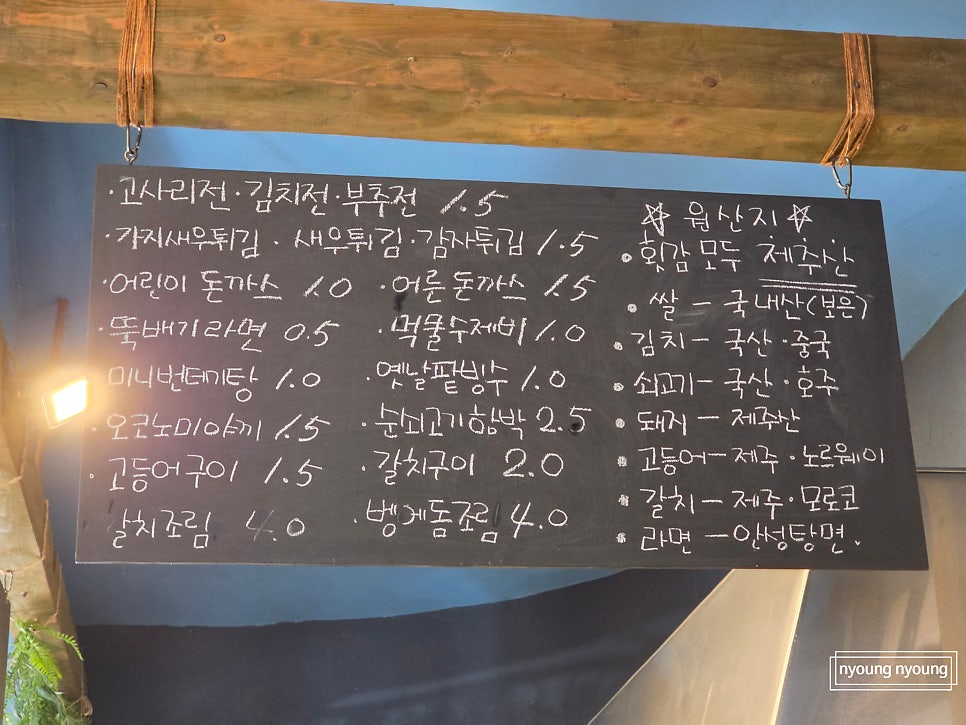 ·고사리전·김치전·부추전 1.5
·가지새우튀김·새우튀김·감자튀김 1.5
·어린이 돈까스 1.0 ·어른돈까스 1.5
·뚝배기라면 0.5 ·먹물수제비 1.0
·미니번데기탕 1.0 ·옛날팥빙수 1.0
·오코노미야끼 1.5 ·순쇠고기함박 2.5
·고등어구이 1.5 ·갈치구이 2.0
갈치조림 4.0 ·벵에돔조림 4.0
☆ 원산지 ☆
·횟감 모두 제주산
·쌀 - 국내산(보은)
·김치 - 국산·중국
·쇠고기 - 국산·호주
·돼지 - 제주산
·고등어 - 제주·노르웨이
·갈치 - 제주·모로코
·라면 - 안성탕면.
nyoung nyoung